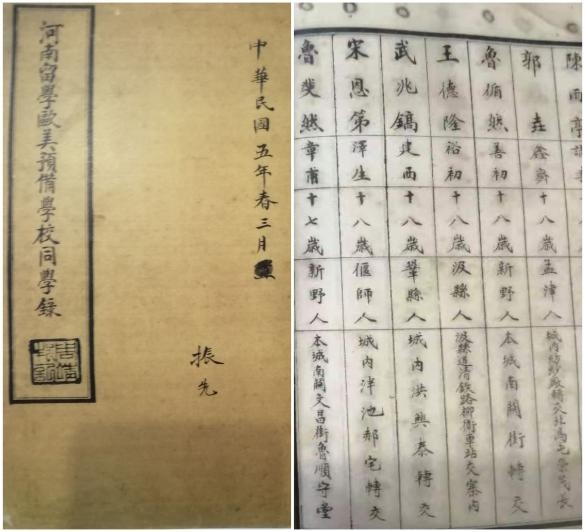 中華民國五年春三月
振先
河南留學歐美預備學校同學錄
陳雨
郭垚 鑫齋 十八歲 孟津人 城內紡紗廠轉交北
魯脩然 善初 十八歲 新野人 本城南關街轉交
王德隆 裕初 十八歲 汲縣人 汲縣道清鉄路柳衛車站交寨內
武兆鎬 建西 十八歲 鞏縣人 城內洪興泰轉交
宋恩第 澤生 十八歲 偃師人 城內泮池郝宅轉交
魯斐然 章甫 十七歲 新野人 本城南關文昌街魯順守堂